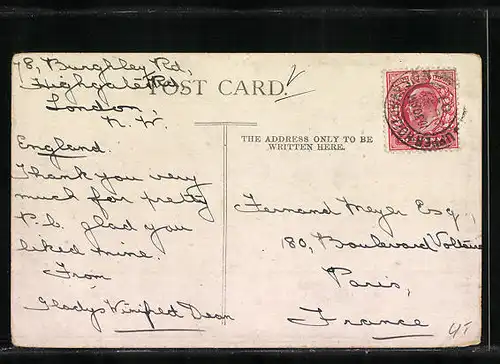 78, Burghley Rd,
Highgate Rd,
London,
N. W.
England.
Thank you very
much for pretty
P.c. glad you
liked mine.
From
Gladys Winifred Dean
POST CARD.
THE ADDRESS ONLY TO BE
WRITTEN HERE.
Fernand Meyer Esq.,
80, Boulevard Voltaire
Paris,
France